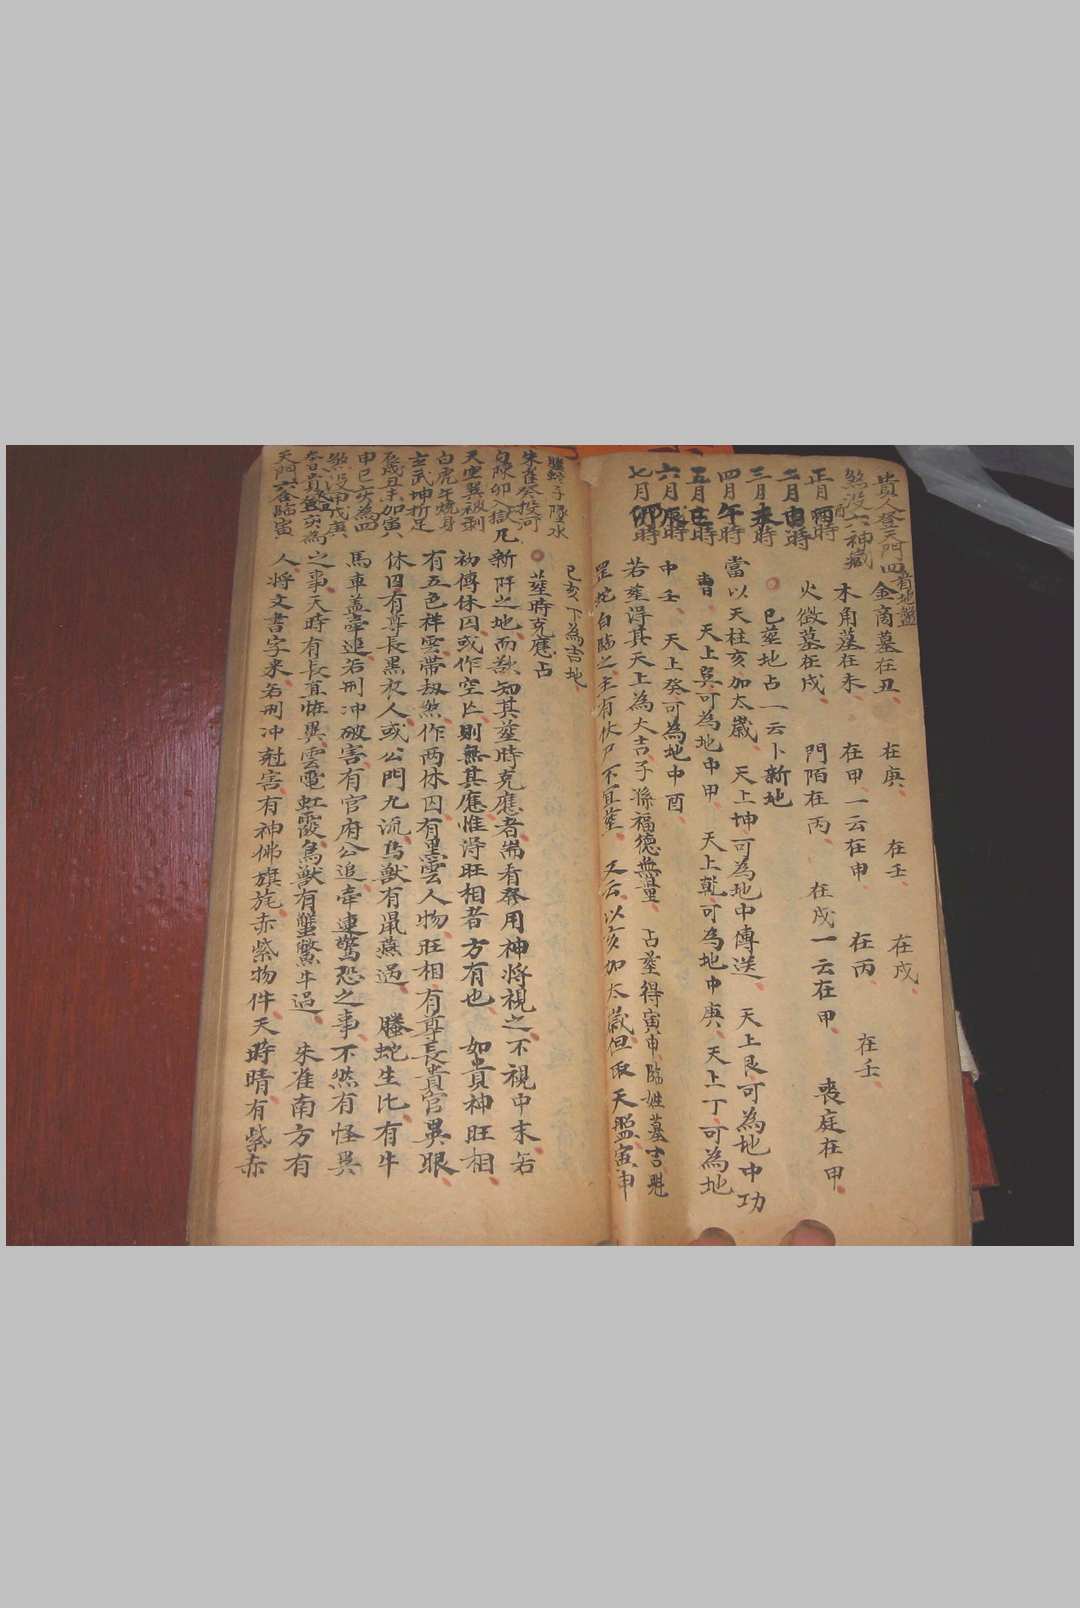 貴人登天門四
煞沒六神藏
正月酉時
二月申時
三月未時
四月午時
五月巳時
六月辰時
七月卯時
看地盤
金商墓在丑 在庚 在壬 在戌
木角墓在未 在甲一云在申 在丙 在壬
火徵墓在戌 門陌在丙 在戌一云在甲 喪庭在甲
○ 已塟地占一云卜新地
當以天柱亥加太歲 天上坤可為地中傳送 天上艮可為地中功
曹 天上巽可為地中甲 天上乾可為地中庚 天上丁可為地
中壬 天上癸可為地中酉
若塟得其天上為大吉子孫福德無量 占塟得寅申臨姓墓吉魁
罡蛇白臨之主有伏尸不宜塟 又云以亥加太歲但取天盤寅申
巳亥下為吉地
螣蛇子墜水
朱雀癸投河
勾陳卯入獄
天空巽被剥
白虎午燒身
玄武坤折足
辰戌丑未加寅
申巳亥為四
煞沒甲戊庚
天門六合臨寅
○塟時克應占
凡新阡之地而欲知其塟時克應者耑看發用神將視之不視中末若
初傳休囚或作空亡則無其應惟得旺相者方有也 如貴神旺相
有五色祥雲帶劫煞作兩休囚有黑雲人物旺相有尊長貴官異眼
休囚有尊長黑衣人或公門九流鳥獸有鼠燕過 螣蛇生比有牛
馬車蓋牽追若刑冲破害有官府公追牽連驚恐之事不然有怪異
之事天時有長直怪異雲電虹霞鳥獸有蟹鱉牛過 朱雀南方有
人將文書字來若刑冲尅害有神佛旗旄赤紫物件天時晴有紫赤